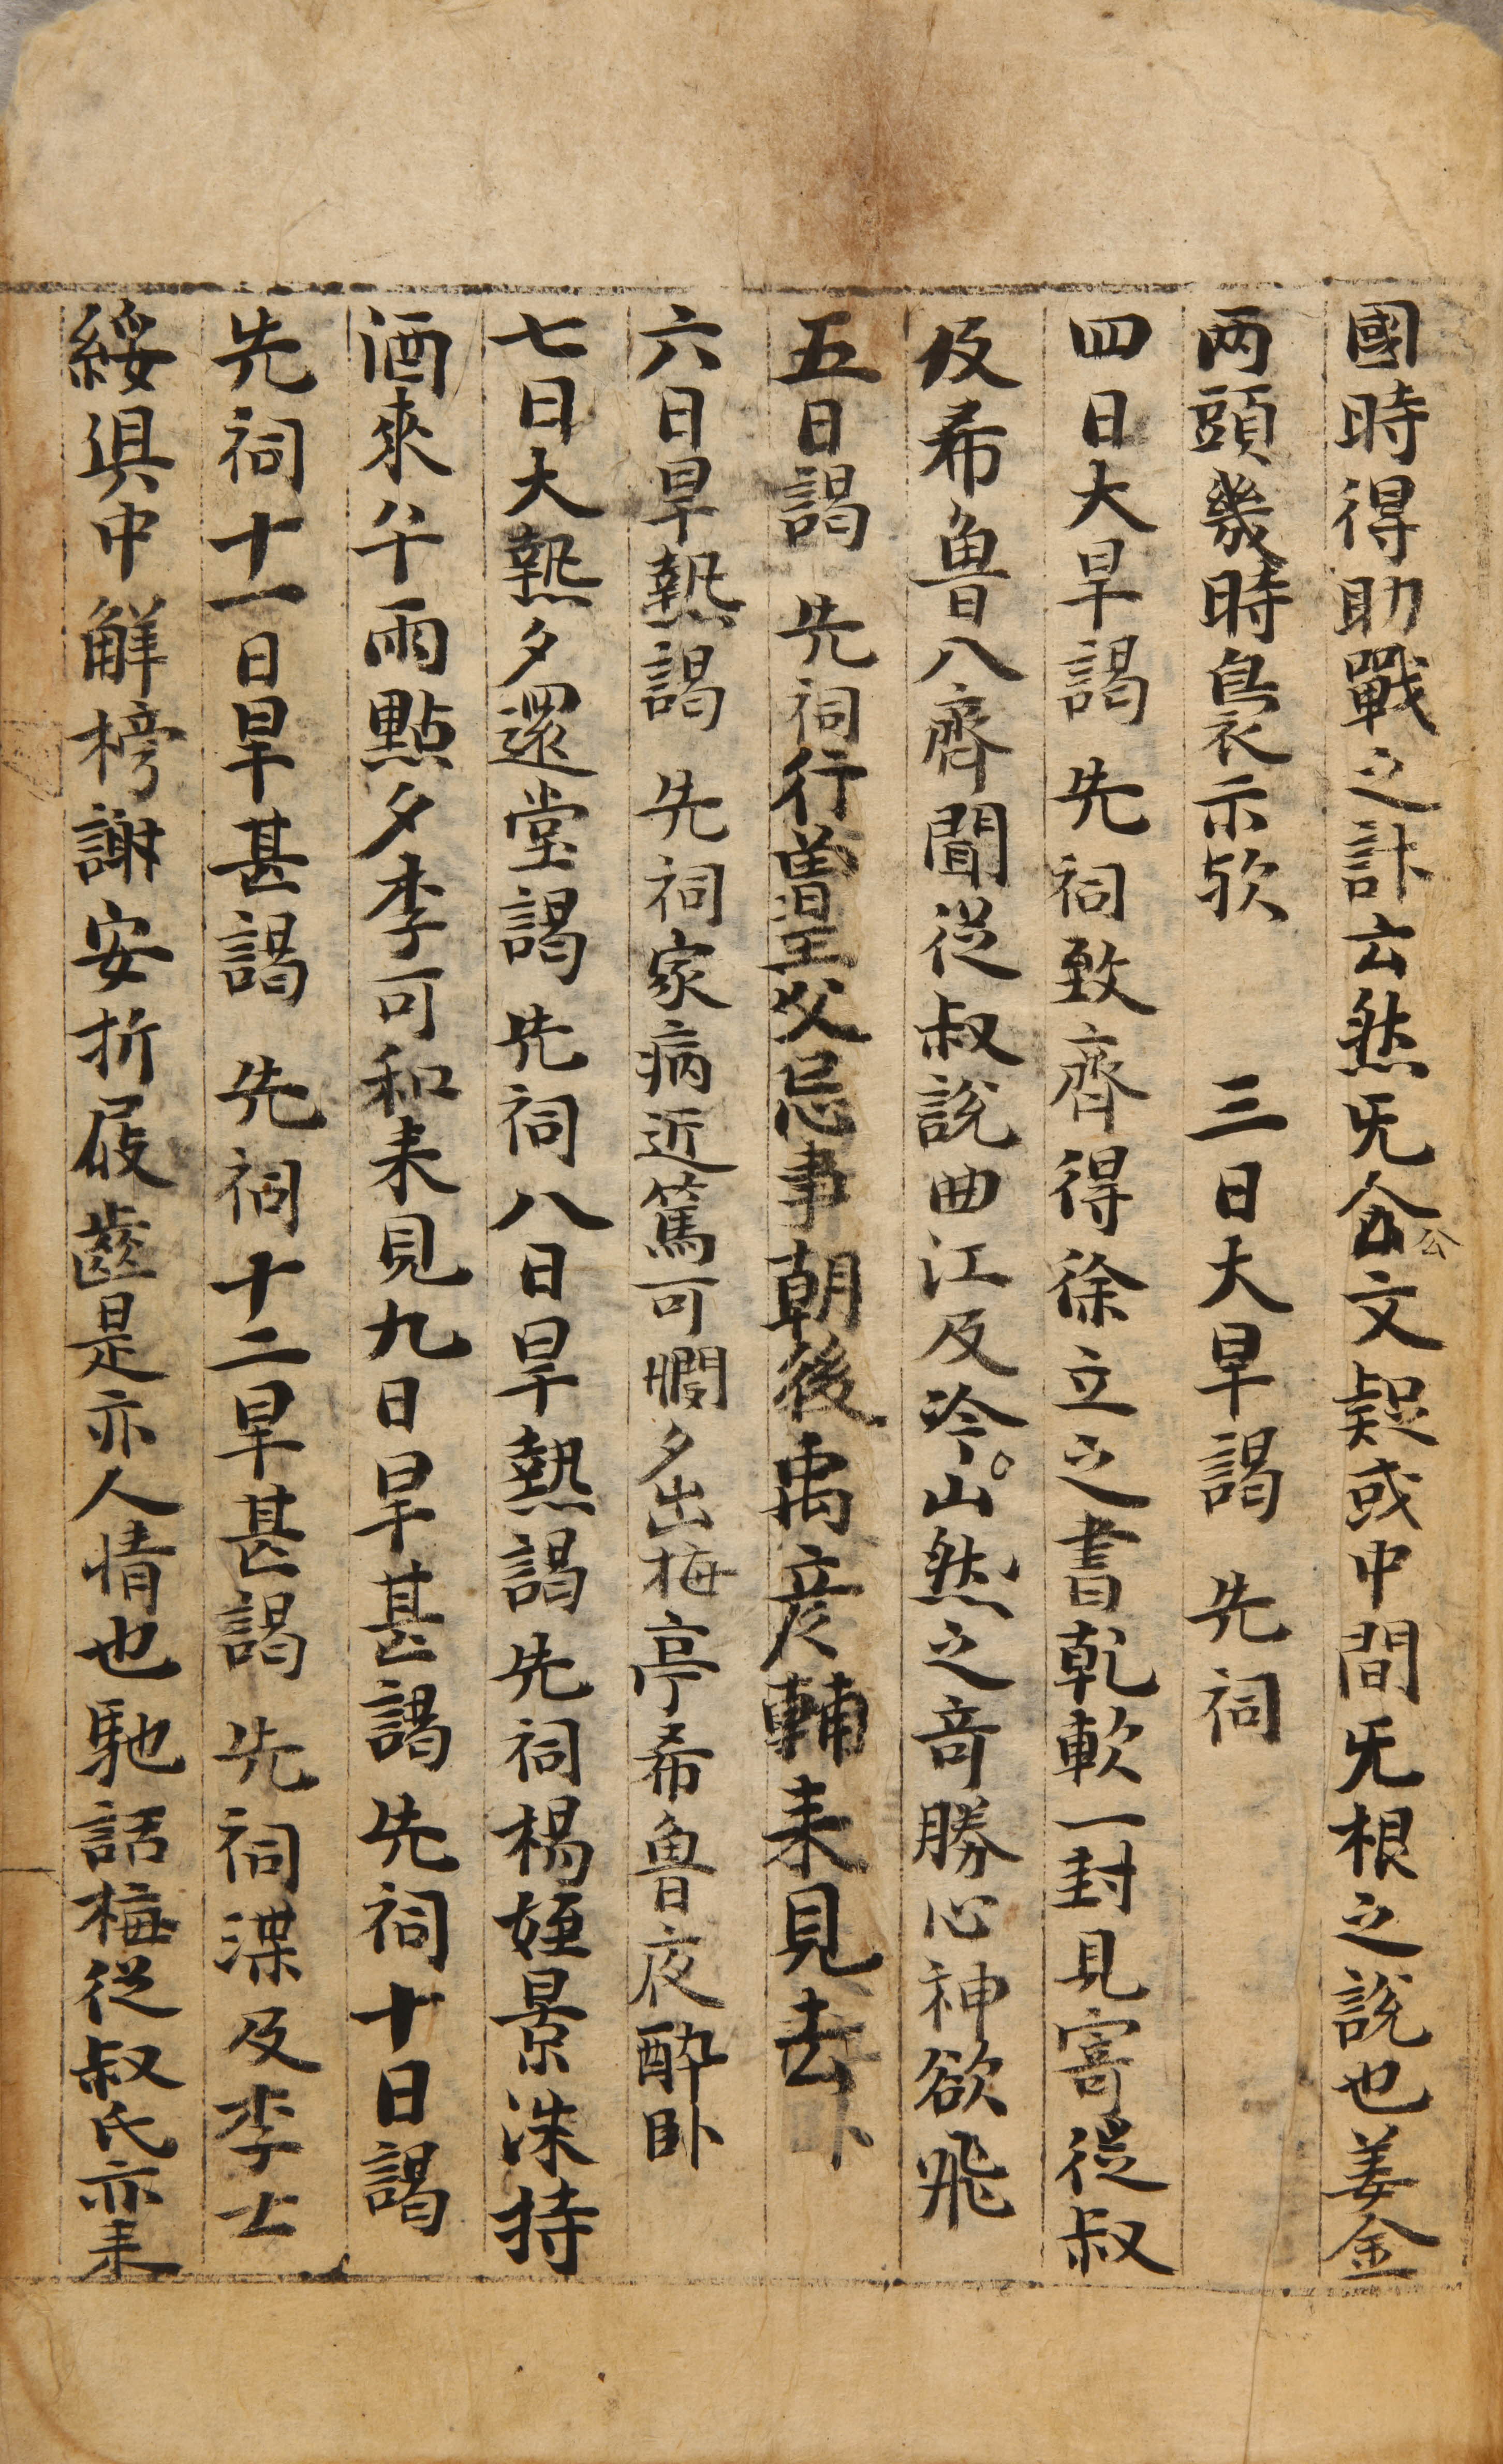 國時得助戰之計云然旡公文疑或中間旡根之說也姜金
两頭幾時梟示欤　三日大旱謁　先祠
四日大旱謁　先祠致齊得徐立之書乾軟一封見寄從叔
及希魯八齊聞從叔說曲江及冷山然之奇勝心神欲飛
五日謁　先祠行曽王父忌事朝後禹彦輔来見去
六日旱熱謁　先祠家病近篤可憫夕出梅亭希魯夜酔卧
七日大熱夕還堂謁　先祠八日旱熱謁　先祠楊姪景洙持
酒來午雨點夕李可和来見九日旱甚謁　先祠十日謁
先祠十一日旱甚謁　先祠十二旱甚謁　先祠渫及李士
綏俱中觧榜謝安折屐齒是亦人情也馳話梅從叔氏亦来